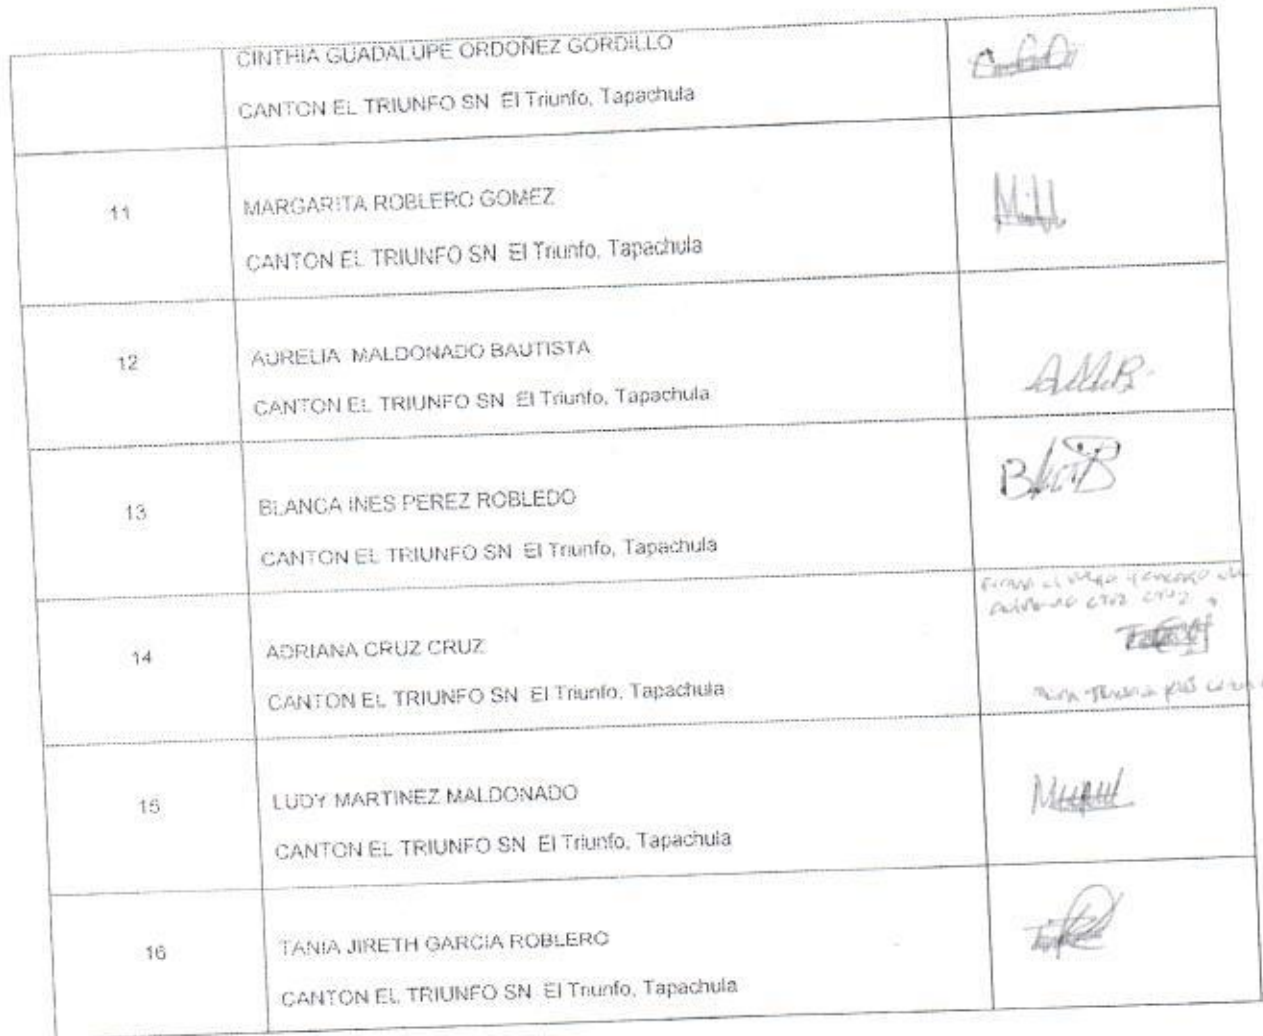 CINTHIA GUADALUPE ORDOÑEZ GORDILLO
CANTON EL TRIUNFO SN El Triunfo, Tapachula
11
MARGARITA ROBLERO GOMEZ
CANTON EL TRIUNFO SN El Triunfo, Tapachula
12
AURELIA MALDONADO BAUTISTA
CANTON EL TRIUNFO SN El Triunfo, Tapachula
13
BLANCA INES PEREZ ROBLEDO
CANTON EL TRIUNFO SN El Triunfo, Tapachula
14
ADRIANA CRUZ CRUZ
CANTON EL TRIUNFO SN El Triunfo, Tapachula
cruz cruz
15
LUDY MARTINEZ MALDONADO
CANTON EL TRIUNFO SN El Triunfo, Tapachula
16
TANIA JIRETH GARCIA ROBLERO
CANTON EL TRIUNFO SN El Triunfo, Tapachula